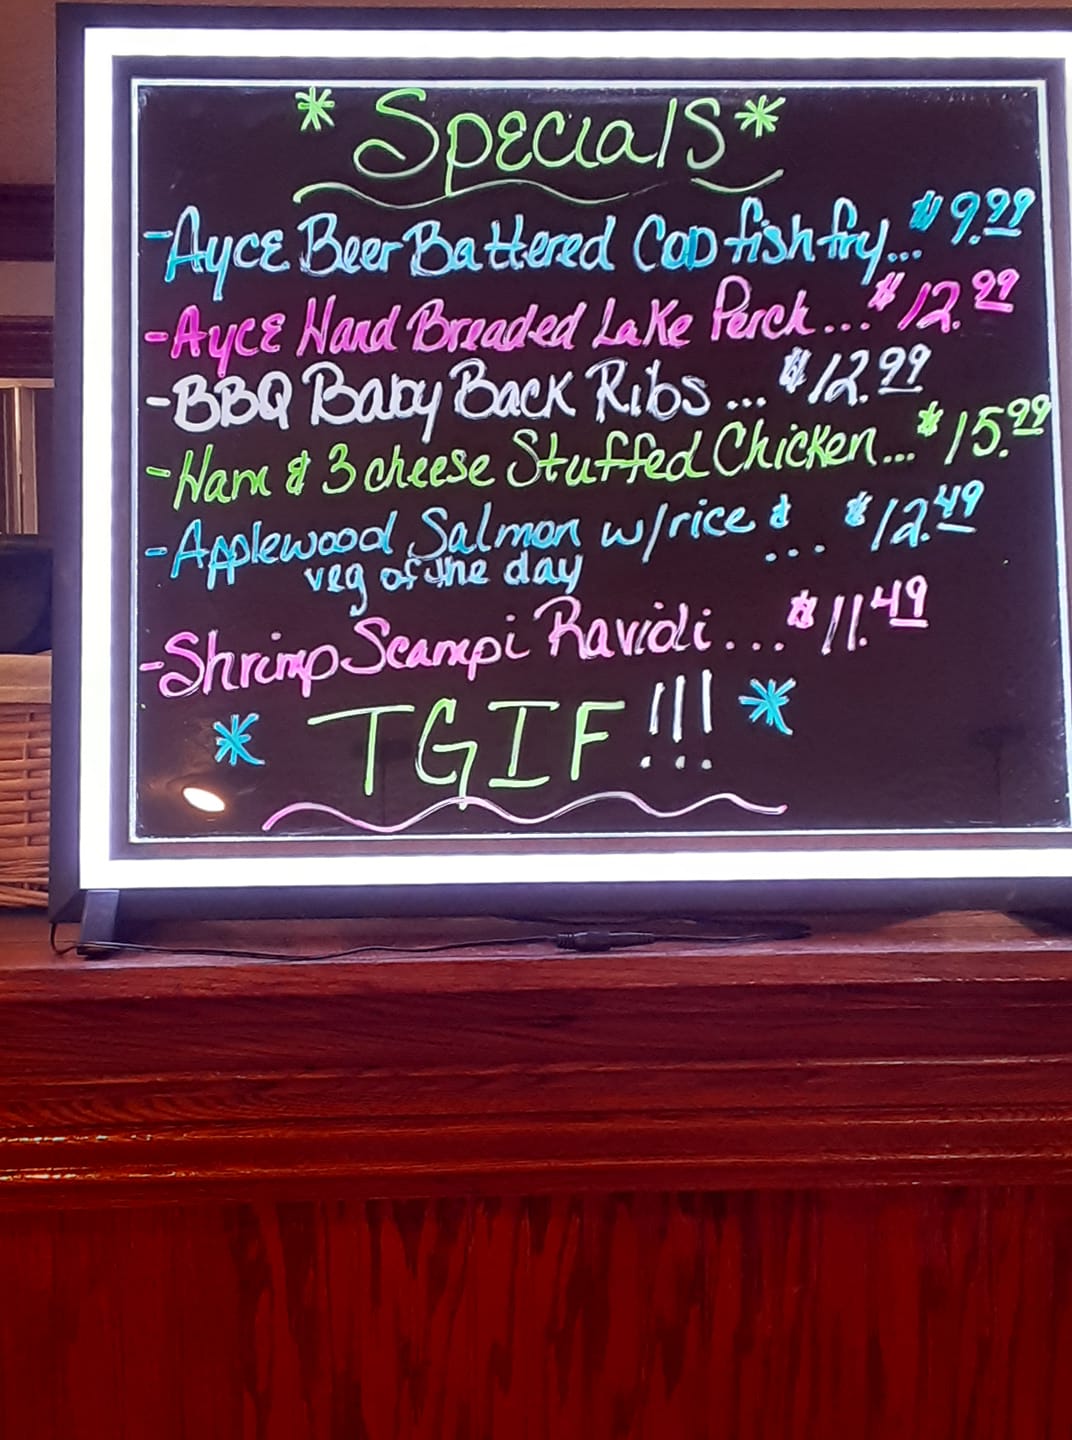 * Specials *
- Ayce Beer Battered Cod fish fry... $9.99
- Ayce Hand Breaded Lake Perch ... $12.99
- BBQ Baby Back Ribs ... $12.99
- Ham & 3 cheese Stuffed Chicken... $15.99
- Applewood Salmon w/rice & ... $12.49
veg of the day
- Shrimp Scampi Ravioli ... $11.49
* TGIF !!! *